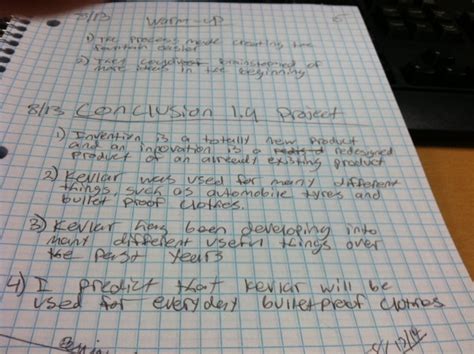 8/13 Warm-up
1) The process made creating the fountain easier
2) They brainstormed of more ideas in the beginning
8/13 Conclusion 1.4 Project
1) Invention is a totally new product
and an innovation is a redesigned
product of an already existing product
2) Kevlar was used for many different
things, such as automobile tyres and
bullet proof clothes.
3) Kevlar has been developing into
many different useful things over
the past years
4) I predict that Kevlar will be
used for everyday bulletproof clothes